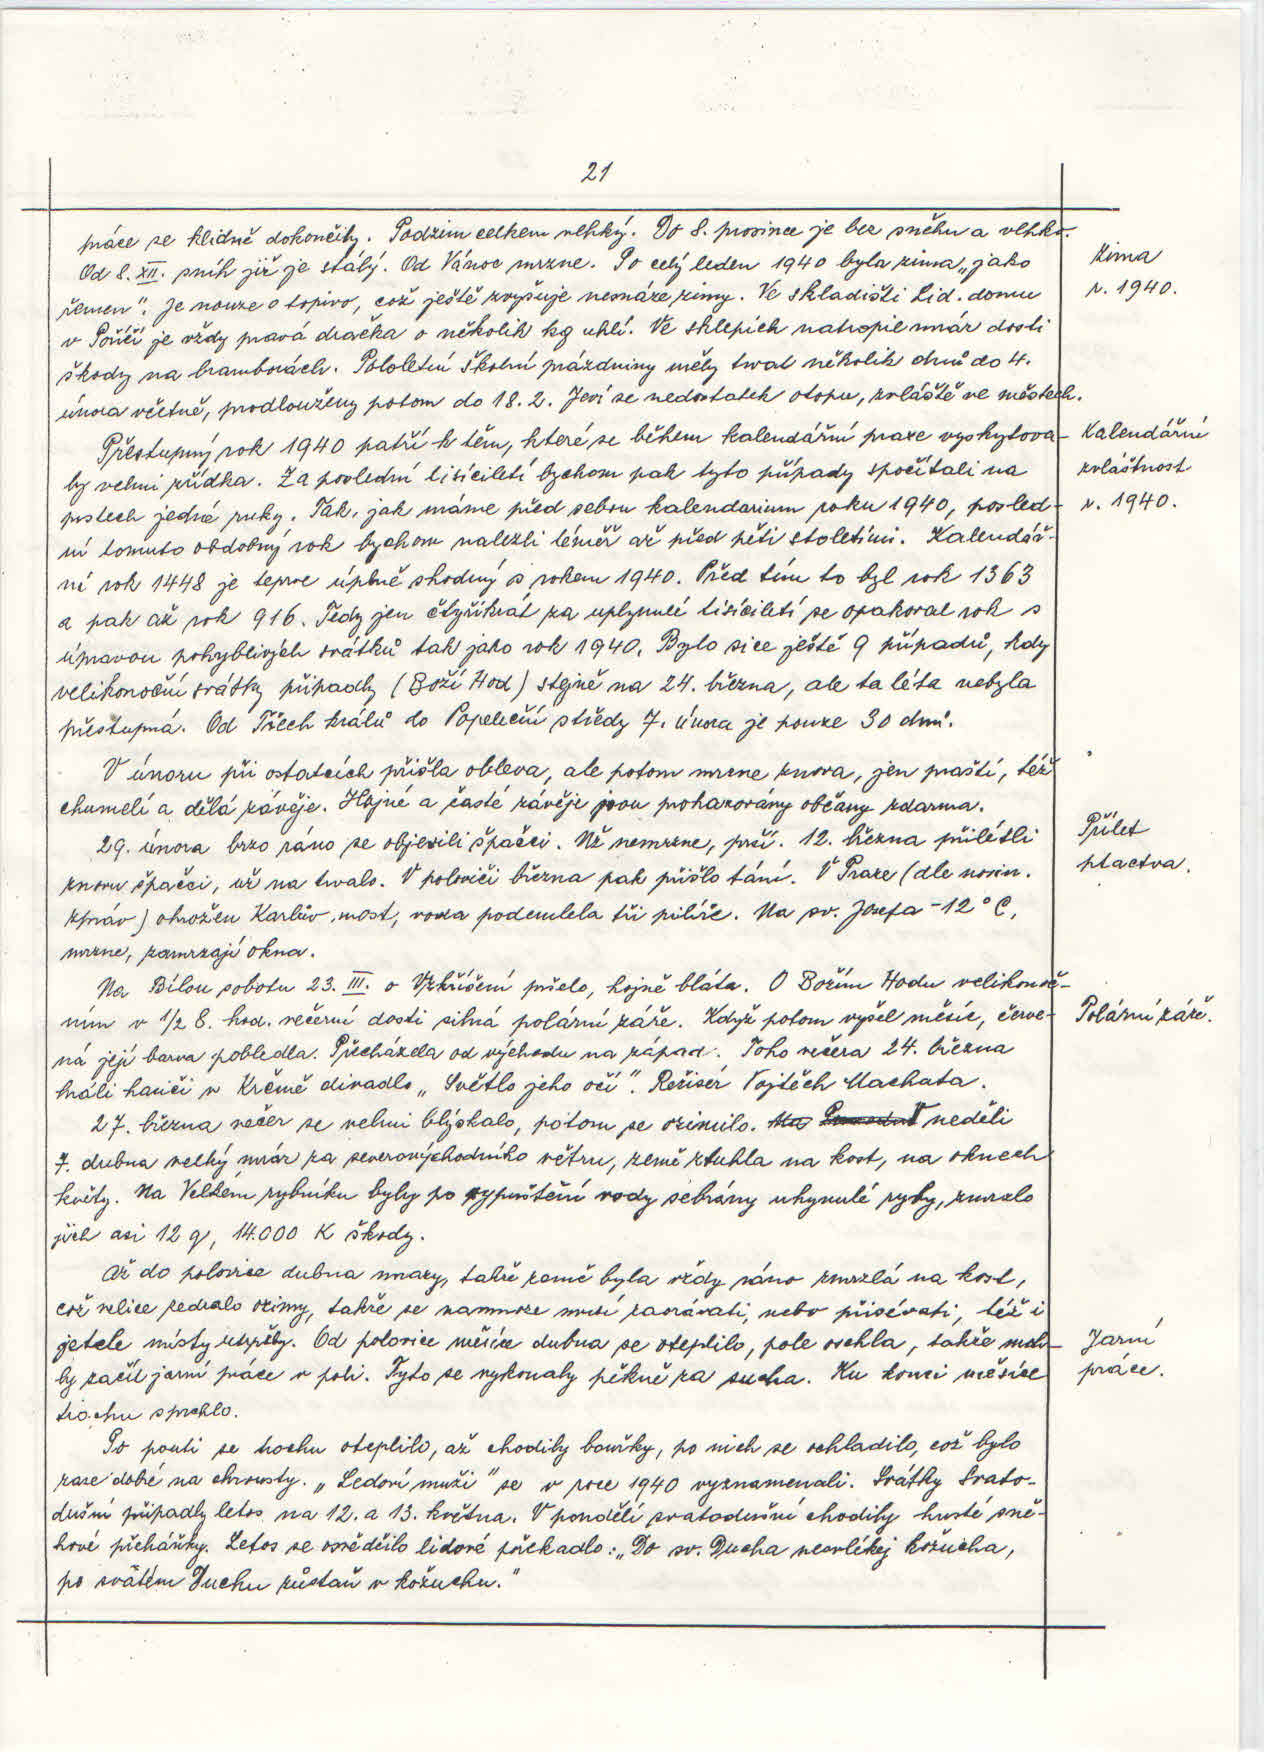 21
práce se klidně dokončily. Podzim celkem vlhký. Do 8. prosince je bez sněhu a vlhko.
Od 8. XII. sníh již je stálý. Od Vánoc mrzne. Po celý leden 1940 byla zima „jako
řemen". Je nouze o topivo, což ještě zvyšuje nesnáze zimy. Ve skladišti Lid. domu
v Poříčí je vždy pravá dračka o několik kg uhlí. Ve sklepích natropil mráz dosti
škody na bramborách. Pololetní školní prázdniny měly trvat několik dnů do 4.
února včetně, prodlouženy potom do 18. 2. Jeví se nedostatek otopu, zvláště ve městech.
zima
r. 1940.
Přestupný rok 1940 patří k těm, které se během kalendářní praxe vyskytova-
ly velmi zřídka. Za poslední tisíciletí bychom pak tyto případy spočítali na
prstech jedné ruky. Tak, jak máme před sebou kalendarium roku 1940, posled-
ní tomuto obdobný rok bychom nalezli téměř až před pěti stoletími. Kalendář-
ní rok 1448 je teprve úplně shodný s rokem 1940. Před tím to byl rok 1363
a pak až rok 916. Tedy jen čtyřikrát za uplynulé tisíciletí se opakoval rok s
úpravou pohyblivých svátků tak jako rok 1940. Bylo sice ještě 9 případů, kdy
velikonoční svátky připadly (Boží Hod) stejně na 24. března, ale ta léta nebyla
přestupná. Od Třech králů do Popeleční středy 7. února je pouze 30 dnů.
Kalendářní
zvláštnost
r. 1940.
V únoru při ostatcích přišla obleva, ale potom mrzne znova, jen praští, též
chumelí a dělá závěje. Hojné a časté závěje jsou prohazovány občany zdarma.
29. února brzo ráno se objevili špačci. Už nemrzne, prší. 12. března přilétli
znovu špačci, už na trvalo. V polovici března pak přišlo tání. V Praze (dle novin.
zpráv) ohrožen Karlův most, voda podemlela tři pilíře. Na sv. Josefa -12° C,
mrzne, zamrzají okna.
Přílet
ptactva.
Na Bílou sobotu 23. III. o Vzkříšení pršelo, hojně bláta. O Božím Hodu velikonoč-
ním v 1/2 8. hod. večerní dosti silná polární záře. Když potom vyšel měsíc, červe-
ná její barva pobledla. Přecházela od východu na západ. Toho večera 24. března
hráli hasiči v Krčmě divadlo „Světlo jeho očí". Režisér Vojtěch Machata.
Polární záře.
27. března večer se velmi blýskalo, potom se ozimilo. Na V neděli
7. dubna velký mráz za severovýchodního větru, země ztuhla na kost, na oknech
květy. Na Velkém rybníku byly po vypuštění vody sebrány uhynulé ryby, zmrzlo
jich asi 12 q, 14.000 K škody.
Až do polovice dubna mrazy, takže země byla vždy ráno zmrzlá na kost,
což velice zedralo ozimy, takže se namnoze musí zaorávati, nebo přisévati, též i
jetele místy utrpěly. Od polovice měsíce dubna se oteplilo, pole oschla, takže moh-
ly začít jarní práce v poli. Tyto se vykonaly pěkně za sucha. Ku konci měsíce
trochu sprchlo.
Jarní
práce.
Po pouti se trochu oteplilo, až chodily bouřky, po nich se ochladilo, což bylo
zase dobré na chrousty. „Ledoví muži" se v roce 1940 vyznamenali. Svátky Svato-
dušní připadly letos na 12. a 13. května. V pondělí svatodušní chodily husté sně-
hové přeháňky. Letos se osvědčilo lidové pořekadlo: „Do sv. Ducha nesvlíkej kožucha,
po svatém Duchu zůstaň v kožuchu."